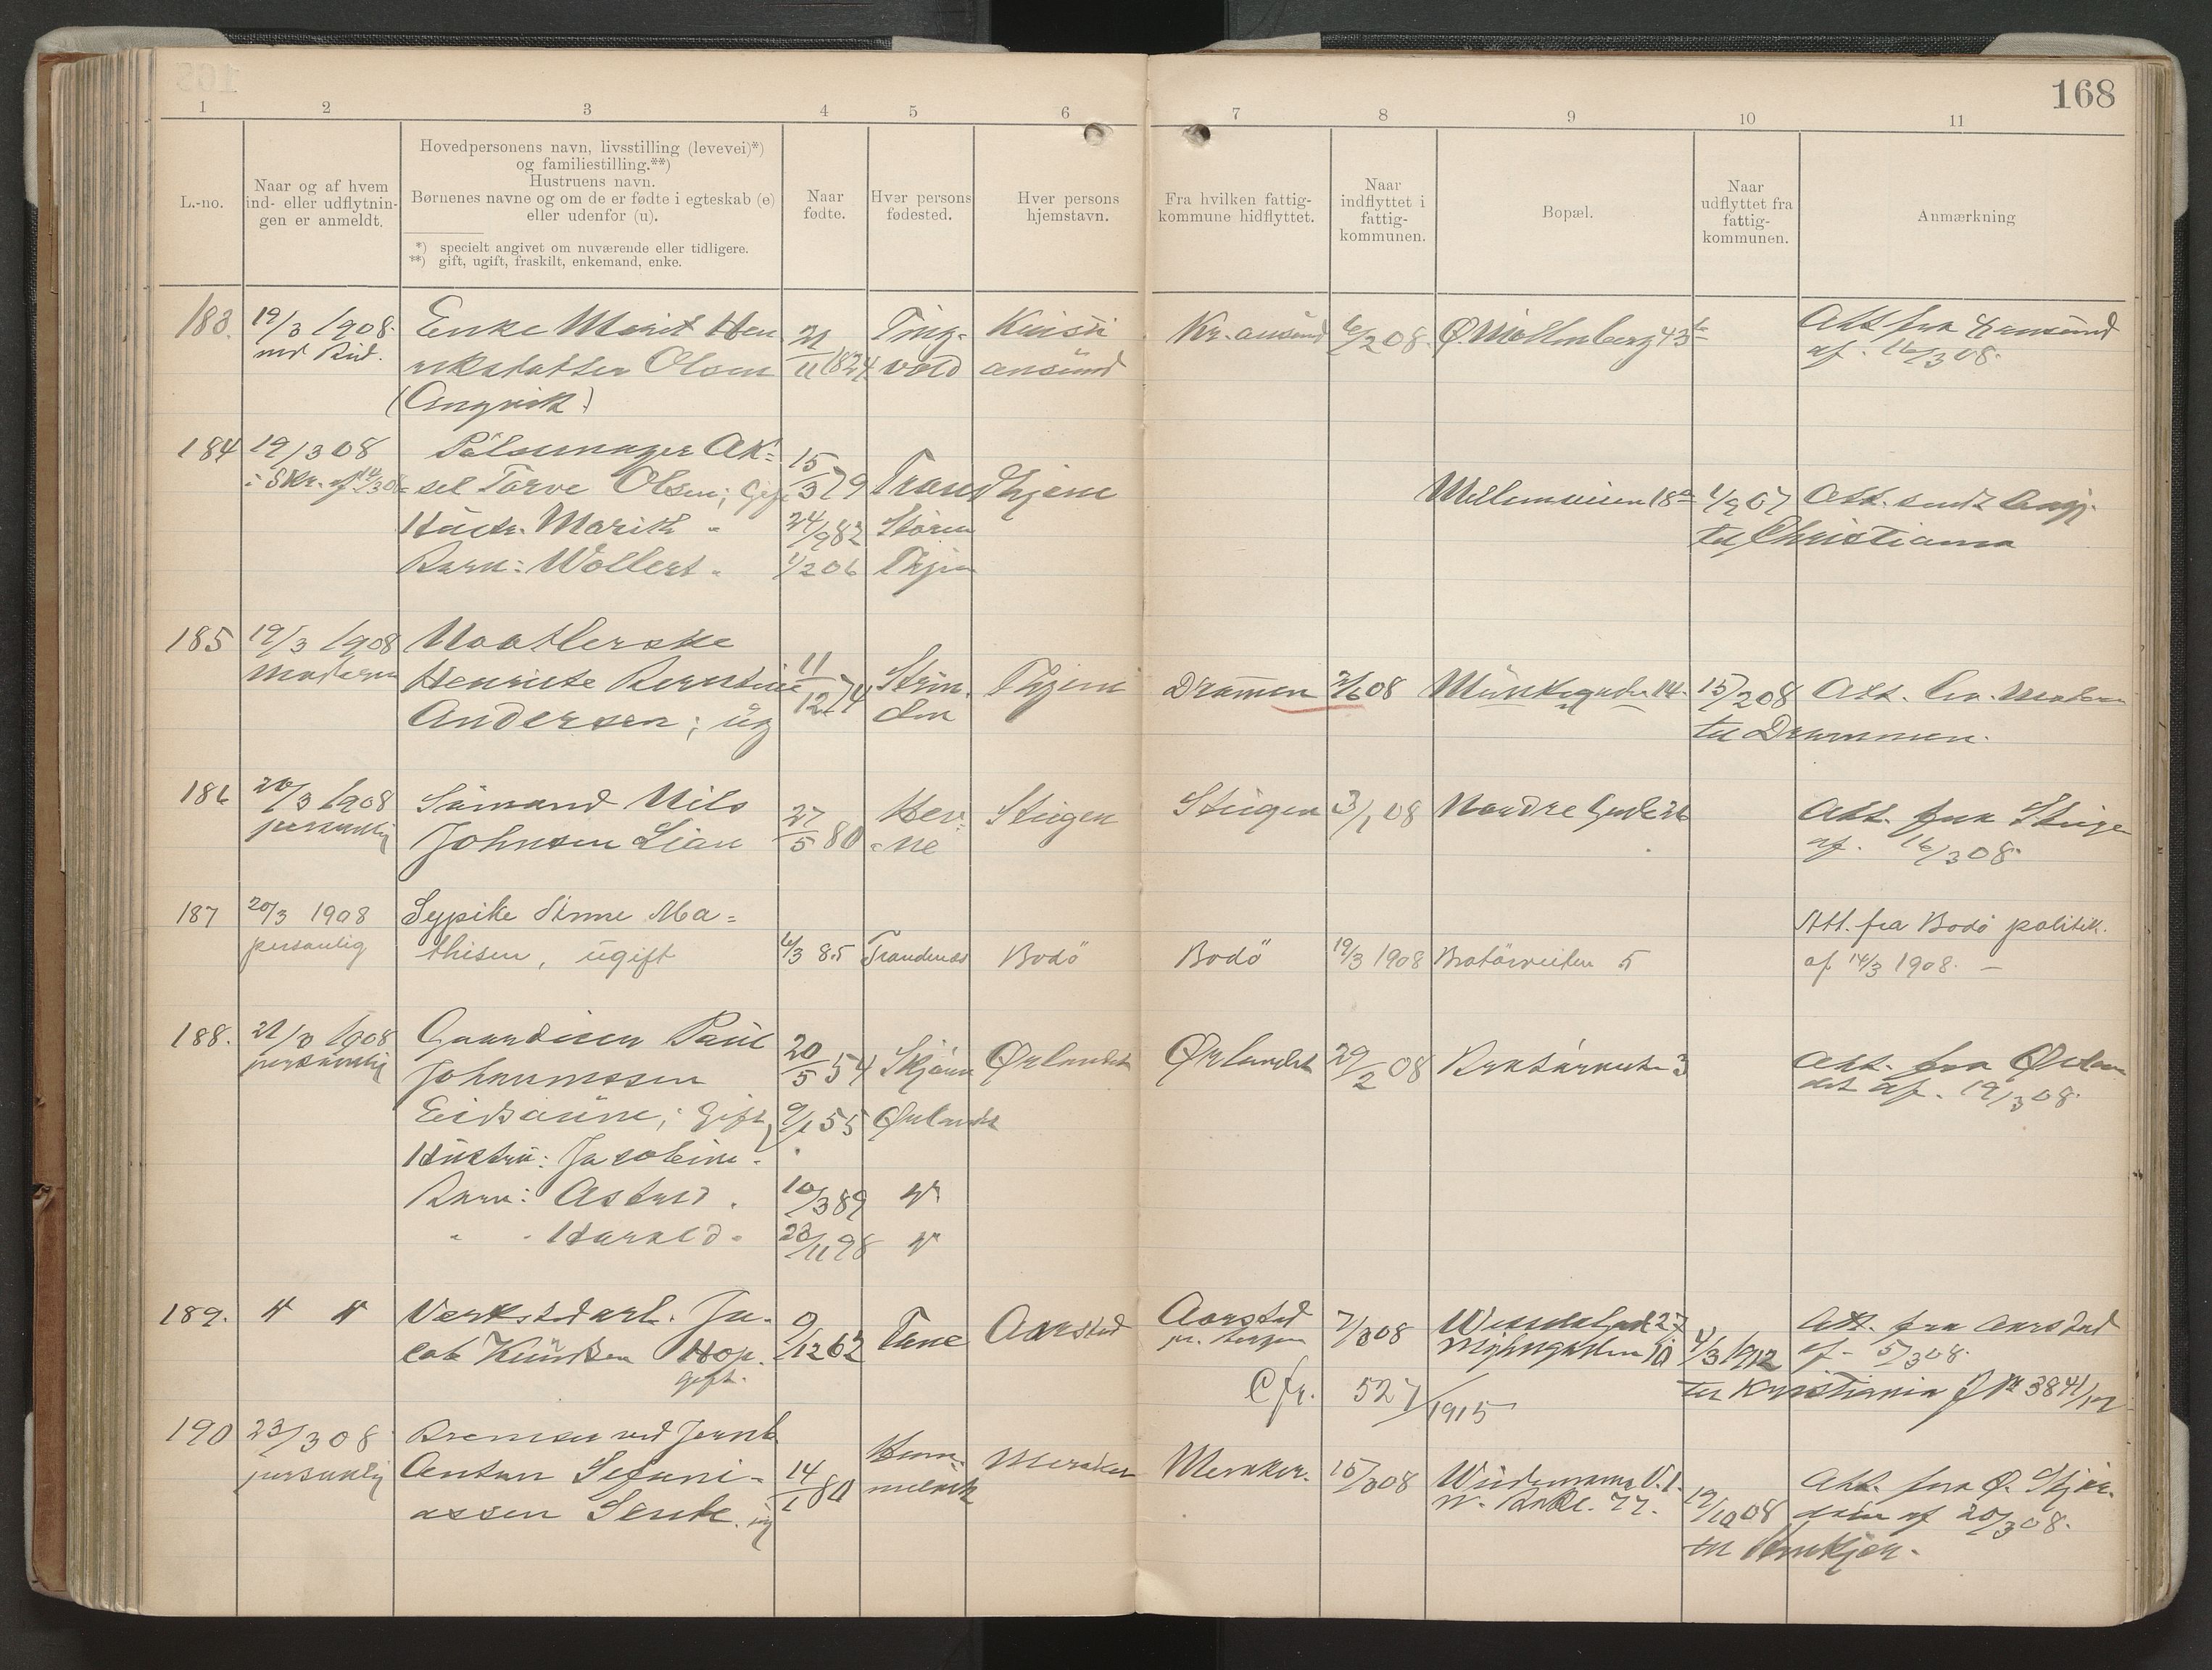 168
1 2 3 4 5 6 7 8 9 10 11
L.-no.
Naar og af hvem
ind- eller udflytnin-
gen er anmeldt.
Hovedpersonens navn, livsstilling (levevei)*)
og familiestilling.**)
Hustruens navn.
Børnenes navne og om de er fødte i egteskab (e)
eller udenfor (u).
*) specielt angivet om nuværende eller tidligere.
**) gift, ugift, fraskilt, enkemand, enke.
Naar
fødte.
Hver persons
fødested.
Hver persons
hjemstavn.
Fra hvilken fattig-
kommune hidflyttet.
Naar
indflyttet i
fattig-
kommunen.
Bopæl.
Naar
udflyttet fra
fattig-
kommunen.
Anmærkning
183. 19/3 1908. Enke Marit Hen Ting- Kristi Kr.ansund 6/2 08. Ø. Møllenberg 43 Att. fra
ved Bud. rikstatter Olsen 21/11 1824 vold ansund af. 16/3 08.
(Angvik)
184 19/3 08 Pølsemager Ak=
sel Torve Olsen; Gift 15/3 79 Trondhjem 18a 1/9 07 Att. sendt
Hustr. Marith " 24/9 82 Støren til Christiania
Barn: Wollert " 1/2 06 Thjem
185 19/3 1908 Vaatlerske
Moderen Henriette Berntine 11/12 74 Strin- Thjem Drammen 2/6 08 Munkegaden 14. 15/2 08 Att. lev. Moderen
Andersen; ug den til Drammen.
186 20/3 1908 Sømand Nils Hev- Steigen Steigen 3/1 08 Nordre Att. fra Steigen
personlig Johnsen Lian 27/5 80 ne af. 16/3 08.
187 20/3 1908 Sypike Stinne Ma= Att. fra Bodø politik.
personlig thisen, ugift 6/3 85 Trondenæs Bodø Bodø 19/3 1908 Bratørveiten 5 af 14/3 1908. —
188. 21/3 1908 Gaardsven Paul
personlig Johannessen 20/5 54 Skjørn Ørlandet Ørlandet 29/2 08 Bratørveiten 3 Att. fra Ørlan
Eidsaune; Gift, 9/1 55 Ørlandet det af. 19/3 08.
Hustru: Jacobine "
Barn: Astrid " 10/3 89 "
" " Harald " 28/11 98 "
189. " " Verkstedarb. Ja- Aarstad 27 Att. fra Aarstad
cob Knudsen Hop. 9/12 62 Tane Aarstad pr. Bergen 7/3 08 10 4/3 1912 af. 5/3 08.
gift. Cfr. 527/1915 til Kristiania J № 3841/12
190 23/3 08 Bremser ved Jernb
personlig Anton Stefani- 14/1 80 Hom- Meraker Meraker. 15/3 08 Att. fra Ø. Stjør-
assen Senke. ug melvik 77. 12/10 08 dalen af 20/3 08.
til Stenkjær.